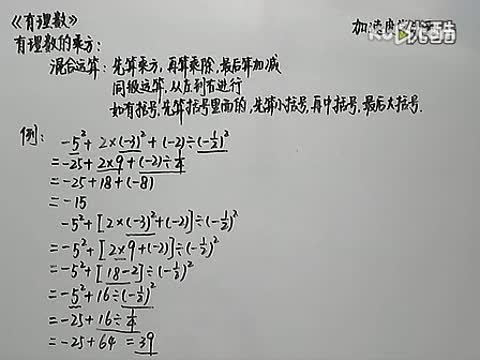 《有理数》
有理数的乘方:
混合运算: 先算乘方,再算乘除,最后算加减
同级运算,从左到右进行
如有括号,先算括号里面的,先算小括号,再中括号,最后大括号.
例:
-5²+2×(-3)²+(-2)÷(-½)²
=-25+2×9+(-2)÷¼
=-25+18+(-8)
=-15
-5²+[2×(-3)²+(-2)]÷(-½)²
=-5²+[2×9+(-2)]÷(-½)²
=-5²+[18-2]÷(-½)²
=-5²+16÷(-½)²
=-25+16÷¼
=-25+64=39
优酷